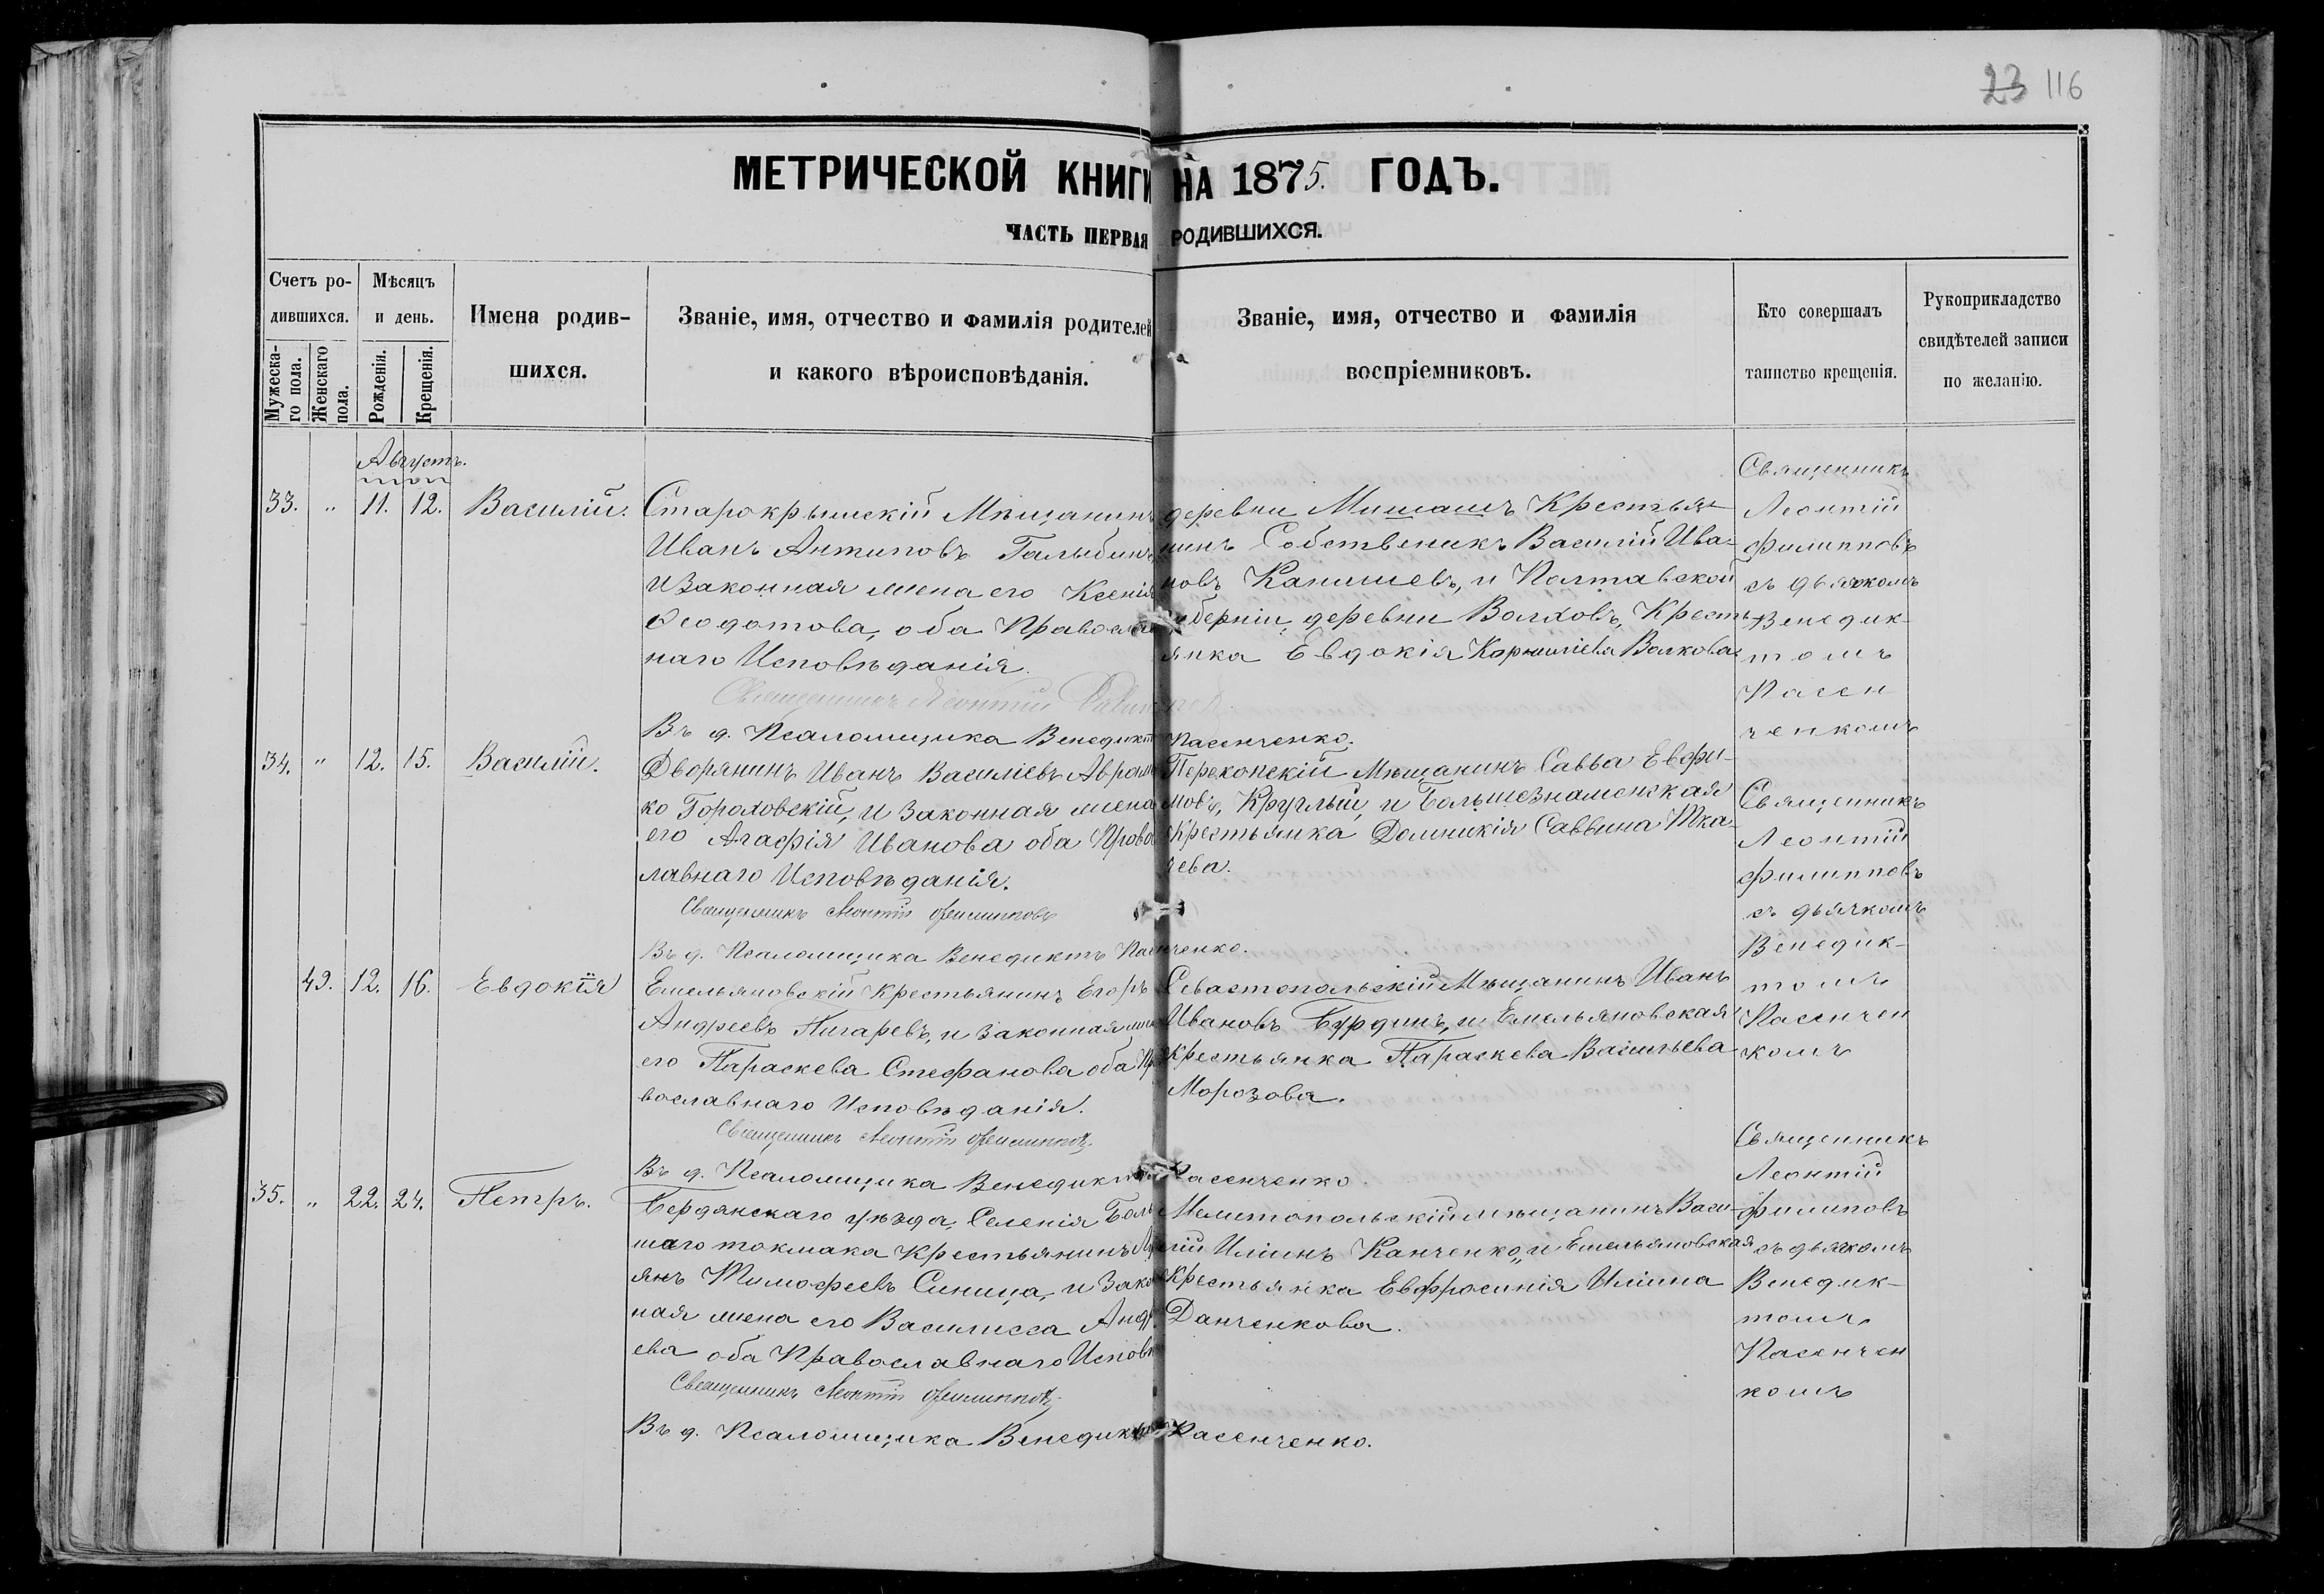 23 116
МЕТРИЧЕСКОЙ КНИГИ НА 1875. ГОДЪ.
ЧАСТЬ ПЕРВАЯ РОДИВШИХСЯ.
Счетъ ро-
дившихся.
Мужеска-
го пола.
Женскаго
пола.
Мѣсяцъ
и день.
Рожденія.
Крещенія.
Имена родив-
шихся.
Званіе, имя, отчество и фамилія родителей
и какого вѣроисповѣданія.
Званіе, имя, отчество и фамилія
воспріемниковъ.
Кто совершалъ
таинство крещенія.
Рукоприкладство
свидѣтелей записи
по желанію.
Августъ.
33. " 11. 12. Василій.
Старокрымскій Мѣщанинъ
Иванъ Антиповъ Галыбинъ,
и Законная жена его Ксенія
Ѳеодотова, оба Православ
наго Исповѣданія.
Священникъ Леонтій
Въ д. Псаломщика Венедиктъ Пасенченко.
деревни Мишашъ Крестья-
нинъ Собственикъ Василій Ива-
новъ Канишевъ, и Полтавской
губерніи, деревни Волховъ, Кресть-
янка Евдокія Корниліева Волкова
Священникъ
Леонтій
Филипповъ
съ дьячкомъ
Венедик-
томъ
Пасен
ченкомъ
34. " 12. 15. Василій.
Дворянинъ Иванъ Василіевъ Аврам
ко Гороховскій, и Законная жена
его Агафія Иванова оба Право
лавнаго Исповѣданія.
Священникъ Леонтій Филипповъ
Въ д. Псаломщика Венедиктъ Пасенченко.
Перекопскій Мѣщанинъ Савва Евфи-
мовъ, Круглый, и Большезнаменская
Крестьянка Домникія Саввина Тка-
чева.
Священникъ
Леонтій
Филипповъ
съ дьячкомъ
Венедик-
томъ
Пасенчен
комъ
49. 12. 16. Евдокія
Емельяновскій Крестьянинъ Егоръ
Андреевъ Пигаревъ, и Законная жена
его Параскева Стефанова оба Пра
вославнаго Исповѣданія.
Священникъ Леонтій Филипповъ
Въ д. Псаломщика Венедиктъ Пасенченко.
Севастопольскій Мѣщанинъ Иванъ
Ивановъ Бурдинъ, и Емельяновская
крестьянка Параскева Васильева
Морозова.
35. " 22. 24. Петръ.
Бердянскаго уѣзда, Селенія Боль
шаго токмака Крестьянинъ
янъ Тимофеевъ Синица, и Закон
ная жена его Василисса Андр
ева оба Православнаго Исповѣ
Священникъ Леонтій Филипповъ
Въ д. Псаломщика Венедиктъ Пасенченко.
Мелитопольскій мѣщанинъ Васи-
лій Иліинъ Канченко, и Емельяновская
Крестьянка Евфросинія Иліина
Данченкова.
Священникъ
Леонтій
Филиповъ
съ дьячкомъ
Венедик-
томъ
Пасенчен
комъ